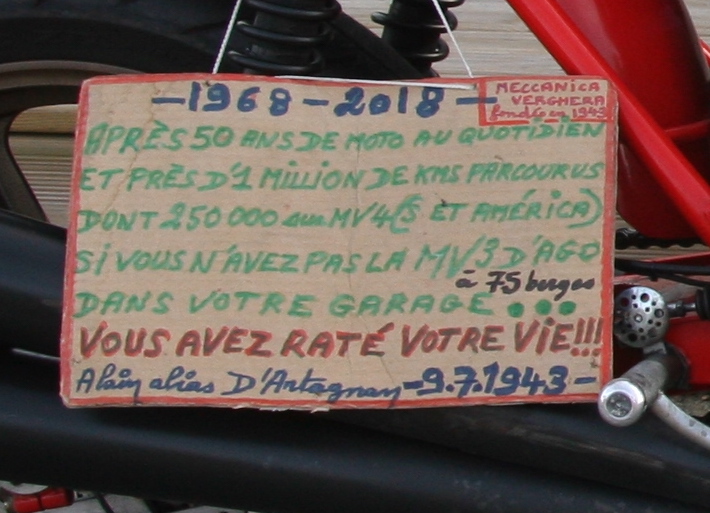 —1968—2018—
MECCANICA
VERGHERA
fondée en 1945
APRÈS 50 ANS DE MOTO AU QUOTIDIEN
ET PRÈS D'1 MILLION DE KMS PARCOURUS
DONT 250 000 sur MV4(S ET AMÉRICA)
SI VOUS N'AVEZ PAS LA MV3 D'AGO
à 75 berges
DANS VOTRE GARAGE...
VOUS AVEZ RATÉ VOTRE VIE!!!
Alain alias D'Artagnan—9.7.1943—